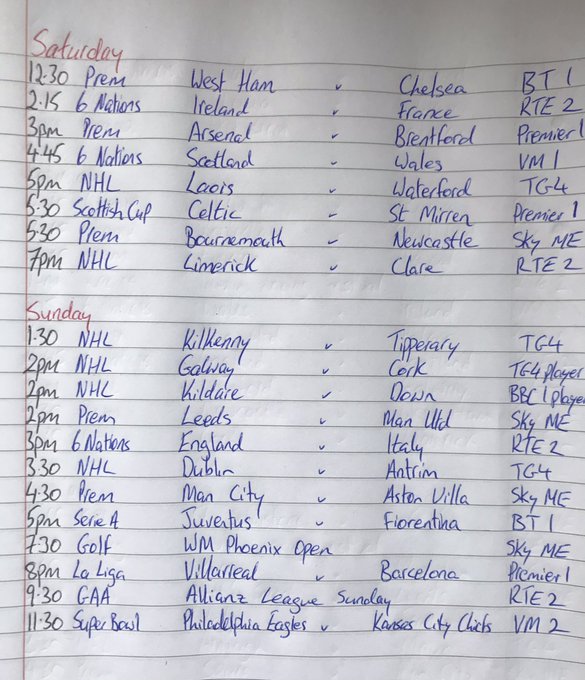 Saturday
12:30 Prem West Ham v Chelsea BT 1
2.15 6 Nations Ireland v France RTE 2
3pm Prem Arsenal v Brentford Premier 1
4.45 6 Nations Scotland v Wales VM 1
5pm NHL Laois v Waterford TG4
5:30 Scottish Cup Celtic v St Mirren Premier 1
5:30 Prem Bournemouth v Newcastle Sky ME
7pm NHL Limerick v Clare RTE 2
Sunday
1.30 NHL Kilkenny v Tipperary TG4
2pm NHL Galway v Cork TG4 player
2pm NHL Kildare v Down BBC 1 player
2pm Prem Leeds v Man Utd Sky ME
3pm 6 Nations England v Italy RTE 2
3.30 NHL Dublin v Antrim TG4
4:30 Prem Man City v Aston Villa Sky ME
5pm Serie A Juventus v Fiorentina BT 1
7:30 Golf WM Phoenix Open Sky ME
8pm La Liga Villarreal v Barcelona Premier 1
9:30 GAA Allianz League Sunday RTE 2
11:30 Super Bowl Philadelphia Eagles v Kansas City Chiefs VM 2